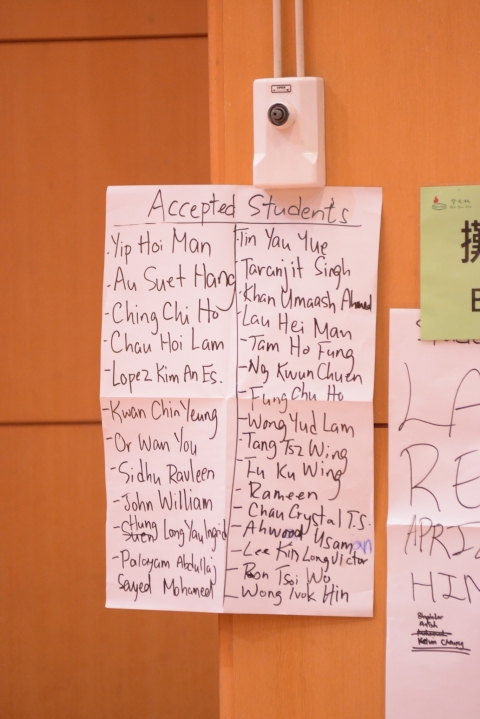 Accepted Students
- Yip Hoi Man
- Au Suet Hang
- Ching Chi Ho
- Chau Hoi Lam
- Lopez Kim An Es.
- Kwan Chin Yeung
- Or Wan You
- Sidhu Ravleen
- John William
- Hung Long Yau Ingrid
- Palayam Abdullaj
Sayed Mohamed
- Tin Yau Yue
- Taranjit Singh
- Khan Umaash Ahmed
- Lau Hei Man
- Tam Ho Fung
- Ng Kwun Chuen
- Fung Chu Ho
- Wong Yud Lam
- Tang Tsz Wing
- Fu Ku Wing
- Rameen
- Chau Crystal T.S.
- Ahwood Usaman
- Lee Kin Long Victor
- Bon Tsoi Wo
- Wong Ivok Hin
摸
E
LA
RE
APRI
HIN
Ketun Cheung